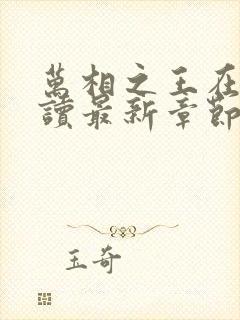 萬相之王在
讀最新章節
玉奇